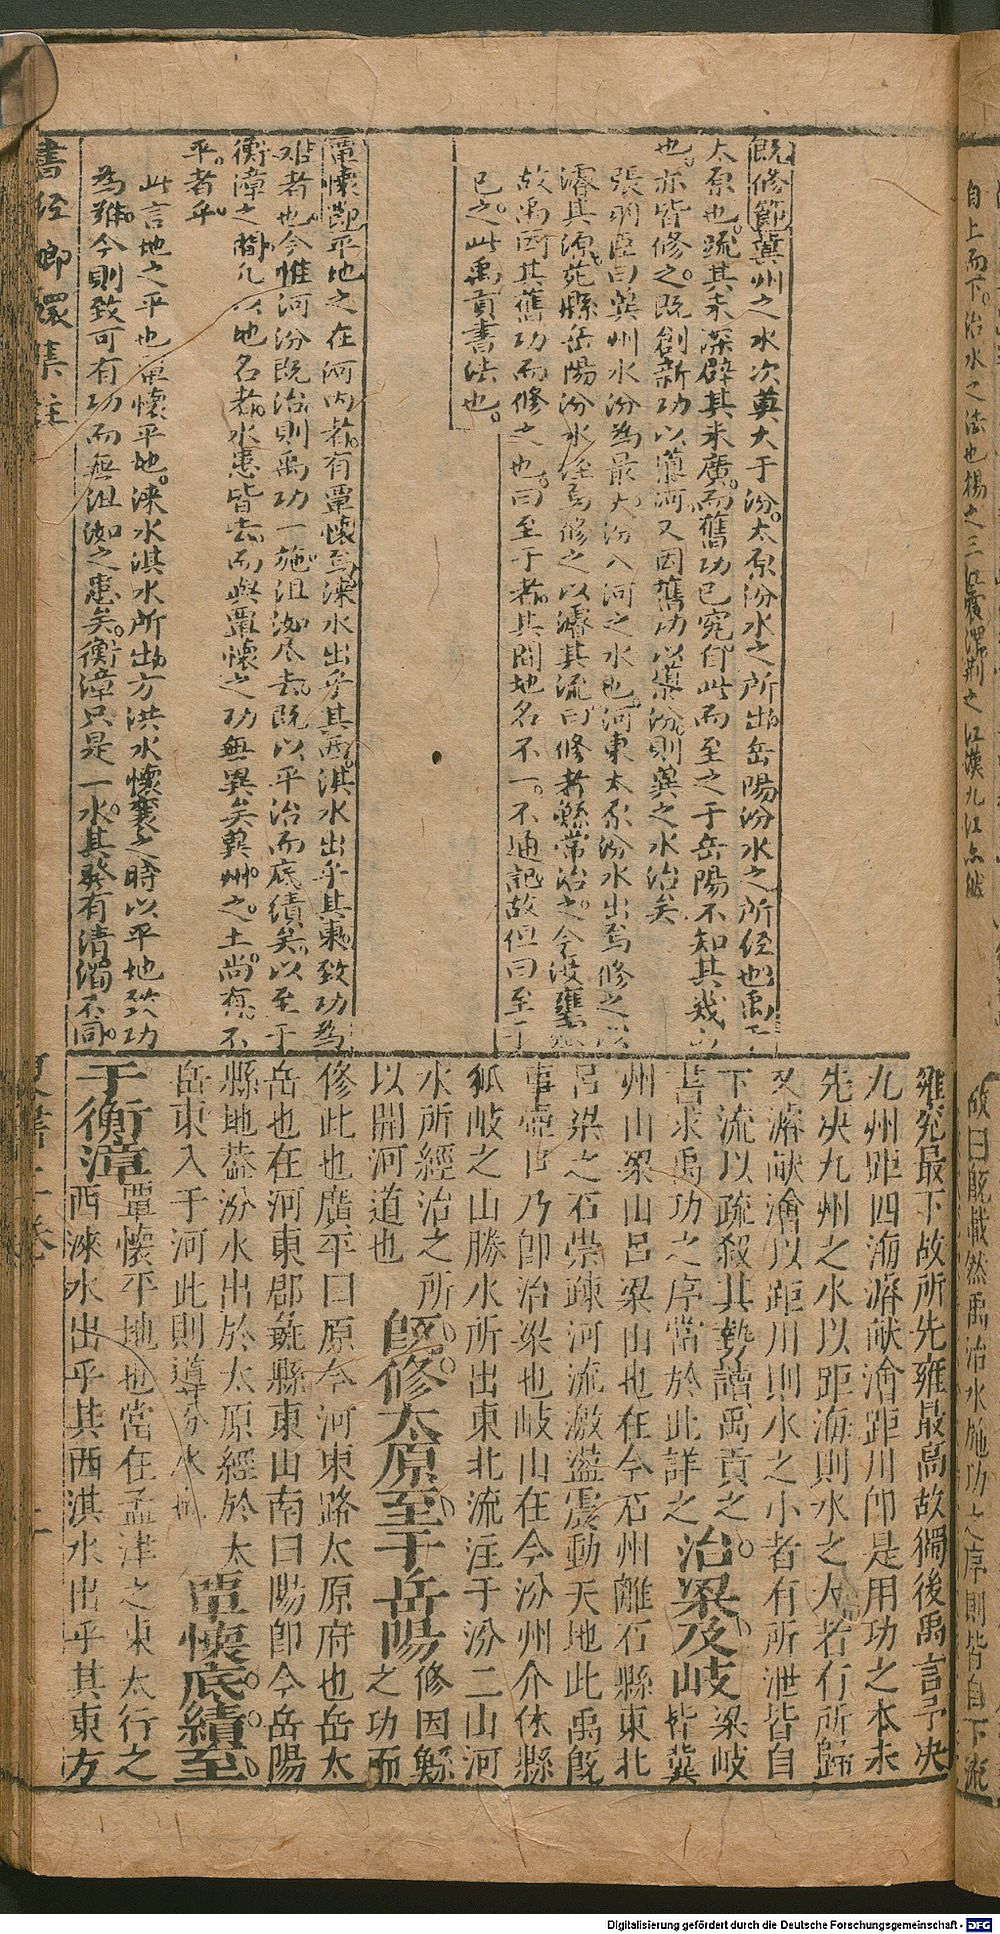 既修節冀州之水次莫大于汾太原汾水之所出岳陽汾水之所經也禹于
太原也疏其未深辟其未廣而舊功已完卽此而至之于岳陽不知其幾
也亦皆修之既創新功以導河又因舊功以導汾則冀之水治矣
張明臣曰冀州水汾為最大汾入河之水也河東太原汾水出焉修之以
濬其源彘縣岳陽汾水經焉修之以濬其流曰修者鯀常治之今沒壅
故禹因其舊功而修之也曰至于者其間地名不一不通記故但曰至于
已之此禹貢書法也
覃懷節平地之在河內者有覃懷焉淶水出乎其西淇水出乎其東致功為
难者也今惟河汾既治則禹功一施沮洳尽去既以平治而底績矣以至于
衡漳之間凡以地名者水患皆去而與覃懷之功無異矣冀州之土尚有不
平者乎
此言地之平也覃懷平地淶水淇水所出方洪水懷襄之時以平地致功
為难今則致可有功而無沮洳之患矣衡漳只是一水其發有清濁不同
書經嫏嬛集註
雍兗最下故所先雍最高故獨後禹言予決
九州距四海濬畎澮距川卽是用功之本末
先决九州之水以距海則水之大者有所歸
又濬畎澮以距川則水之小者有所泄皆自
下流以疏殺其勢讀禹貢之
書求禹功之序當於此詳之
治梁及岐
梁岐
皆冀
州山梁山呂梁山也在今石州離石縣東北
呂梁之石崇竦河流激盪震動天地此禹既
事壺口乃卽治梁也岐山在今汾州介休縣
狐岐之山勝水所出東北流注于汾二山河
水所經治之所
以開河道也
既修太原至于岳陽
修因鯀
之功而
修此也廣平曰原今河東路太原府也岳太
岳也在河東郡彘縣東山南曰陽卽今岳陽
縣地葢汾水出於太原經於太
岳東入于河此則導汾水也
覃懷底績至
于衡漳
覃懷平地也當在孟津之東太行之
西淶水出乎其西淇水出乎其東方
夏書一卷
自上而下治水之法也揚之三江荊之江漢九江亦然
故曰既載然禹治水施功之序則皆自下流
Digitalisierung gefördert durch die Deutsche Forschungsgemeinschaft - DFG